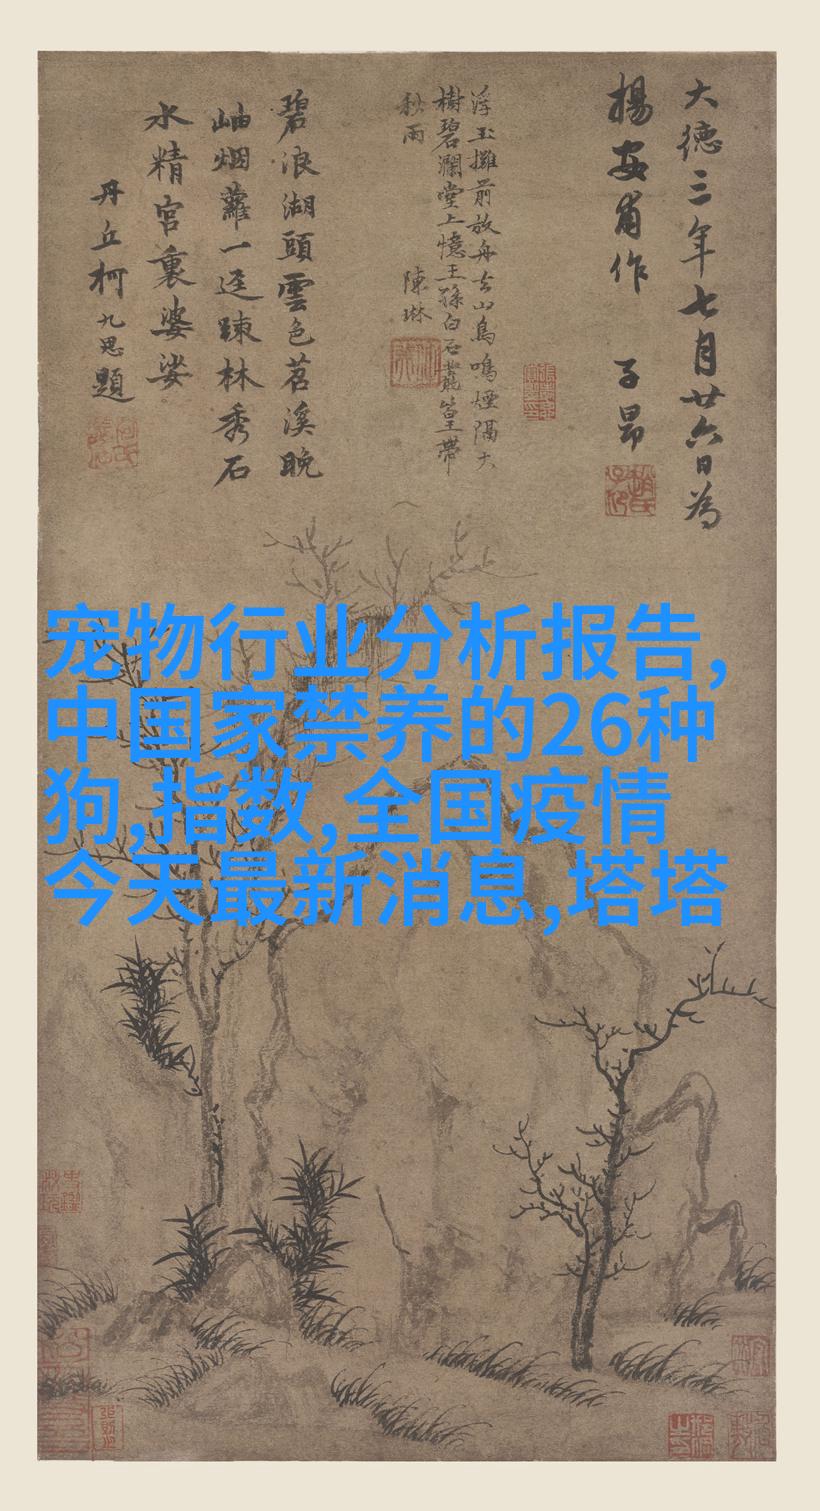 大德三年七月廿六日為
楊安甫作 子昂
浮玉攤前放舟去山鳥鳴煙隔大
樹碧瀾堂上憶王孫白石叢篁帶
秋雨 陳琳
碧浪湖頭雲色苕溪晚
岫烟蘿一逕踈林秀石
水精宮裏婆娑
丹丘柯九思題
宠物行业分析报告,
中国家禁养的26种
狗,指数,全国疫情
今天最新消息,塔塔